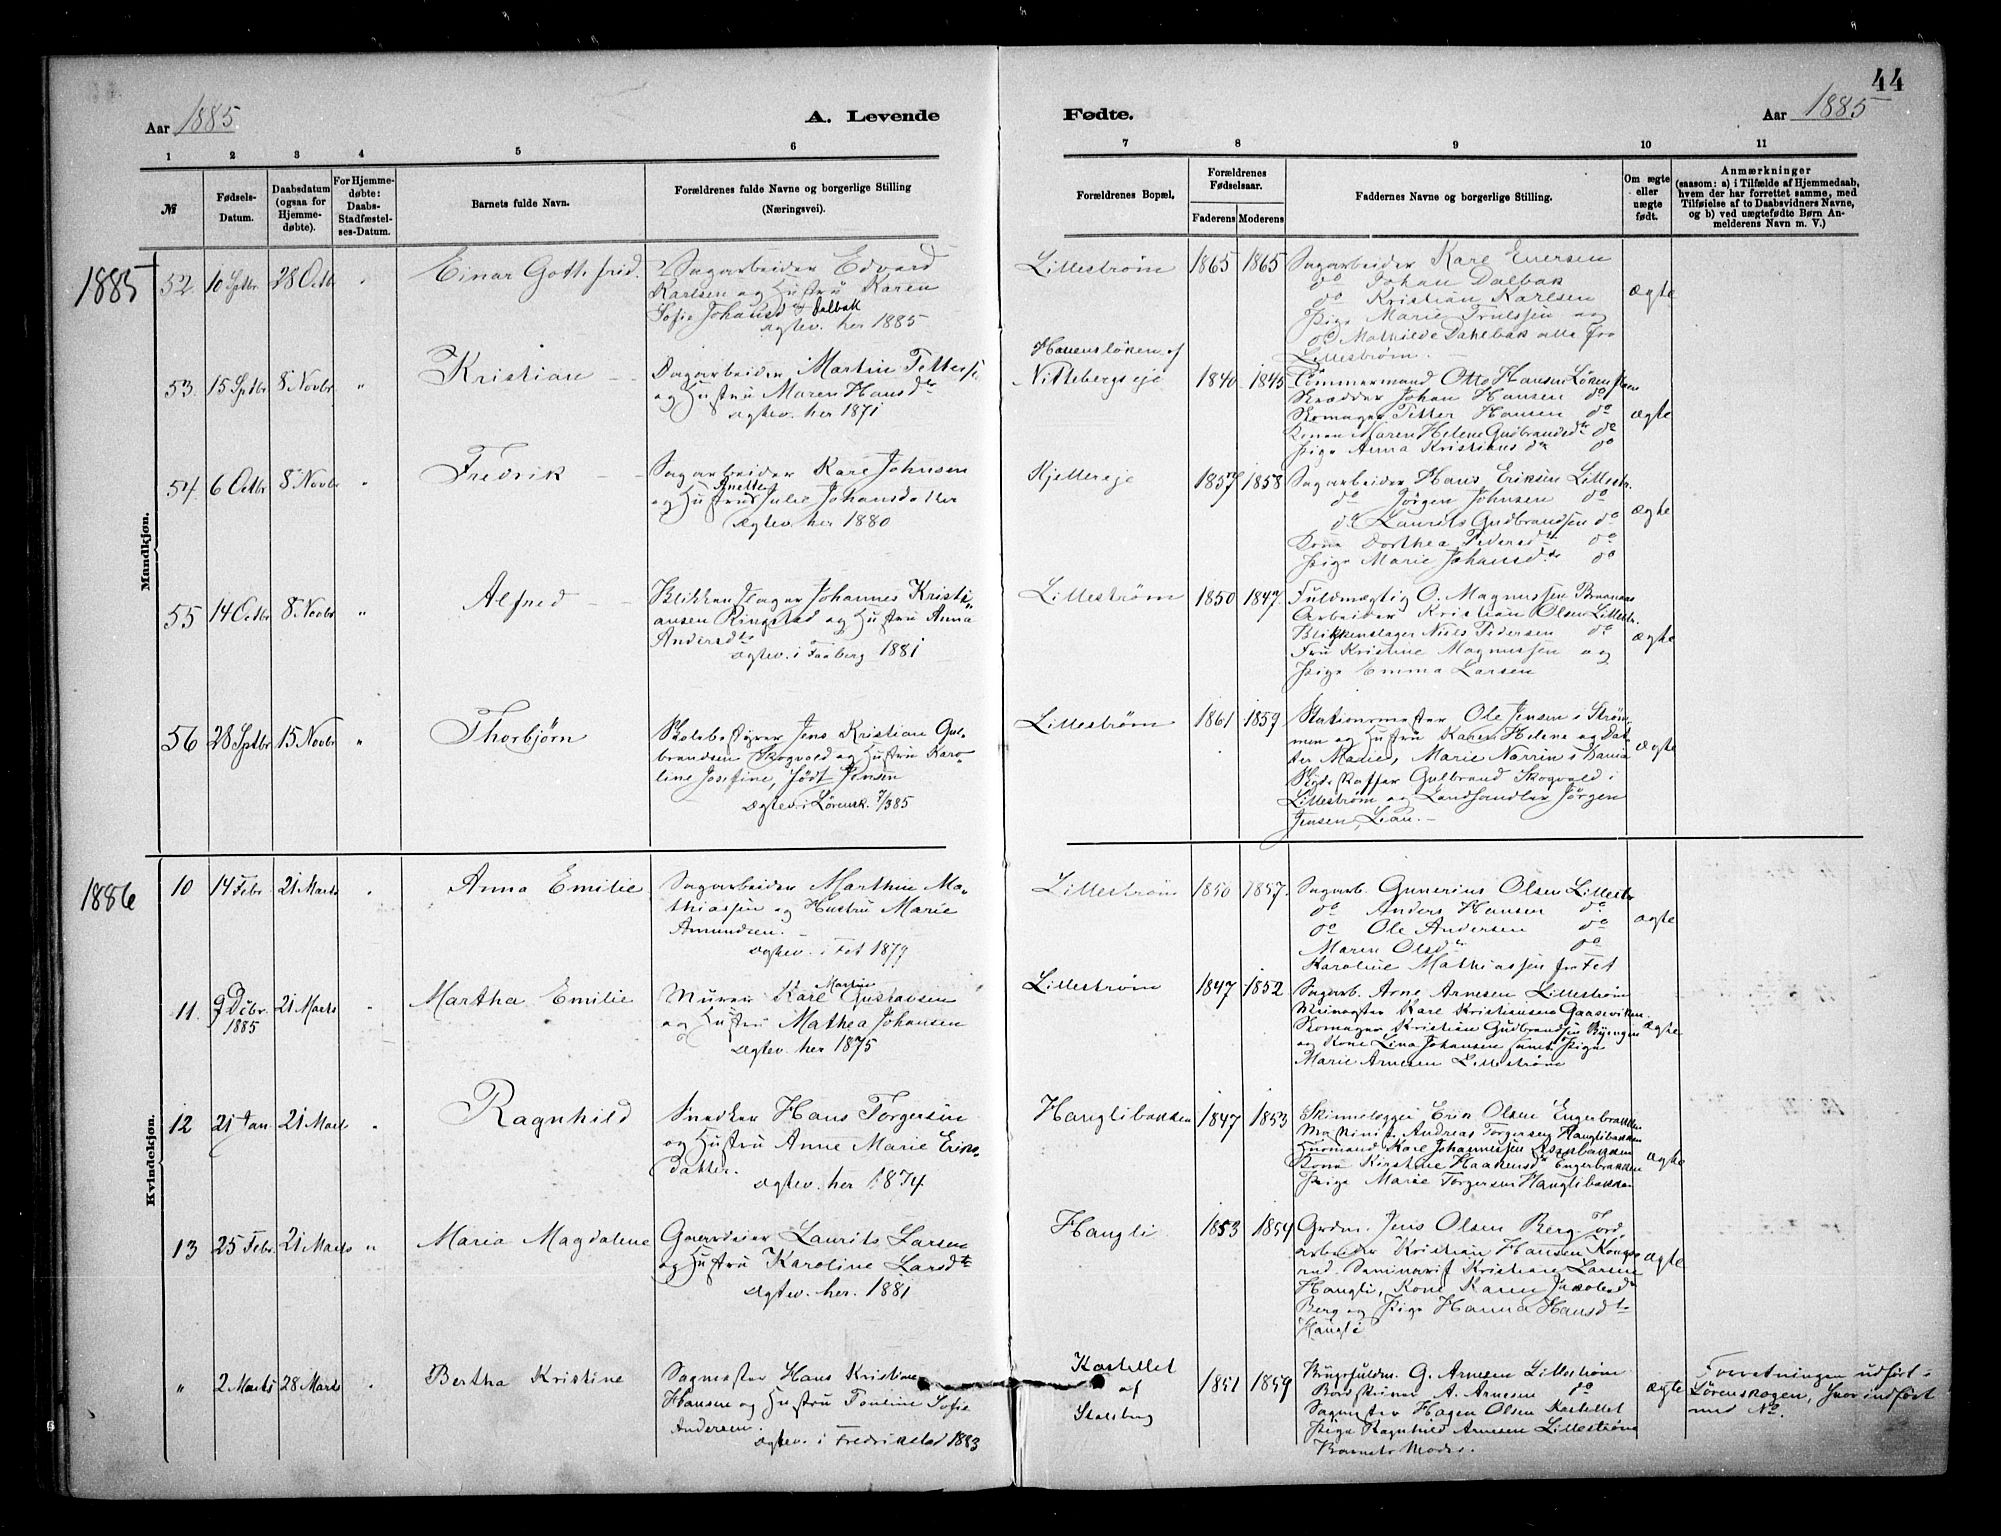 44
Aar 1885
A. Levende
Fødte.
Aar 1885
1 2 3 4 5 6 7 8 9 10 11
№
Fødsels-
Datum.
Daabsdatum
(ogsaa for
Hjemme-
døbte).
For Hjemme-
døbte:
Daabs-
Stadfæstel-
ses-Datum.
Barnets fulde Navn.
Forældrenes fulde Navne og borgerlige Stilling
(Næringsvei).
Forældrenes Bopæl.
Forældrenes
Fødselsaar.
Faderens Moderens
Faddernes Navne og borgerlige Stilling.
Om ægte
eller
uægte
født.
Anmærkninger
(saasom: a) i Tilfælde af Hjemmedaab,
hvem der har forrettet samme, med
Tilføielse af to Daabsvidners Navne,
og b) ved uægtefødte Børn An-
melderens Navn m. V.)
Mandkjøn.
1885
52. 10 Sptbr 28 Octbr "
Einar Gottfrid.
Sagarbeider Edvard
Karlsen og Hustru Karen
Sofie Johansd Dalbak
Ægtev. her 1885
Lillestrøm 1865 1865
Sagarbeider Karl Evensen
do Johan Dalbak
do Kristian Karlsen
Pige Marie Trulssen og
do Mathilde Dahlbak alle fra
Lillestrøm.
ægte
53. 15 Sptbr 8 Novbr "
Kristian
Dagarbeider Martin Petters
og Hustru Maren Hansdtr
Ægtev. her 1871
Nittebergseje 1840 1845
Tømmermand Otto Hansen Løken
Skrædder Johan Hansen do
Skomager Petter Hansen do
Konen Maren Helene Gudbrandsdtr do
Pige Anna Kristiansdtr do
ægte
54. 6 Octbr 8 Novbr "
Fredrik
Sagarbeider Karl Johnsen
og Hustru Anette Julie Johansdatter
Ægtev. her 1880
Kjellereje 1857 1858
Sagarbeider Hans Eriksen Lillestr.
do Jørgen Johnsen do
do Laurits Gudbrandsen do
Kone Dorthea Pedersdtr do
Pige Marie Johansdtr do
ægte
55 14 Octbr 8 Novbr "
Alfred
Blikkenslager Johannes Kristi-
ansen Ringstad og Hustru Anna
Andersdtr
Ægtev. i Faaberg 1881
Lillestrøm 1850 1847.
Fuldmægtig O. Magnussen
Arbeider Kristian Olsen Lillestr.
Blikkenslager Niels Pedersen do
Fru Kristine Magnussen og
Pige Emma Larsen
ægte
56 28 Sptbr 15 Novbr "
Thorbjørn
Skolebestyrer Jens Kristian Gul-
brandsen Skogvold og Hustru Karo-
line Josefine, født Jensen
Ægtev. i Lørensk. 7/3 85
Lillestrøm 1861 1859
Stationsmester Ole Jensen i Strøm-
men og Hustru Karen Helene og Dat-
ter Marie, Marie Narrin i
Skydsskaffer Gulbrand Skogvold i
Lillestrøm og Landhandler Jørgen
Jensen,
ægte
Kvindekjøn.
1886
10 14 Febr. 21 Marts "
Anna Emilie
Sagarbeider Marthin Ma-
thiassen og Hustru Marie
Amundsen.
Ægtev. i Fet 1879
Lillestrøm 1850 1857.
Sagarb. Gunerius Olsen Lillestr
do Anders Hansen do
do Ole Andersen do
Maren Olsdtr do
Karoline Mathiassen fra Fet
ægte
11. 9 Dcbr. 1885 21 Marts "
Martha Emilie
Murer Karl Martin Gustavsen
og Hustru Mathea Johansen
Ægtev. her 1875
Lillestrøm 1847 1852
Sagarb. Arne Arnesen Lillestrøm
Karl Kristiansen Gaasevikin
Skomager Kristian Gudbrandsen Byengen
og Kone Lina Johansen samt Pige
Marie Arnesen Lillestrøm
ægte
12 21 Jan 21 Marts "
Ragnhild
Snedker Hans Torgersen
og Hustru Anne Marie Eriks-
datter.
Ægtev. her 1874.
Hanglibakken 1847 1853
Skinnelægger Erik Olsen Engerbrakken
Maskinist Andreas Torgersen Hanglibakken
Husmand Karl Johannessen Asenbakken
Kone Kirstine Haakensdtr Engerbrakken
Pige Marie Torgersen Hanglibakken
ægte
13 25 Febr. 21 Marts "
Maria Magdalene
Gaardeier Laurits Larsen
og Hustru Karoline Larsdtr
Ægtev. her. 1881
Hangli 1853 1854
Grdm. Jens Olsen Berg, Jord
arbeider Kristian Hansen Kongs-
rud. Seminarist Kristian Larsen
Hangli, Kone Karen Jacobsd
Berg og Pige Hanna Hansdtr
Hangli
ægte
" 2 Marts 28 Marts "
Bertha Kristine
Sagmester Hans Kristian
Hansen og Hustru Pouline Sofie
Andersen.
Ægtev. i Fredrikstad 1883
Kastellet
af
Stalsberg
1851 1859
Brugsfuldm. G. Arnesen Lillestrøm
Bordskriver A. Arnesen do
Sagmester Hagen Olsen Kastellet
Pige Ragnhild Arnesen Lillestrøm
Barnets Moder.
ægte
Forretningen udført i
Lørenskogen, hvor indført
med No.